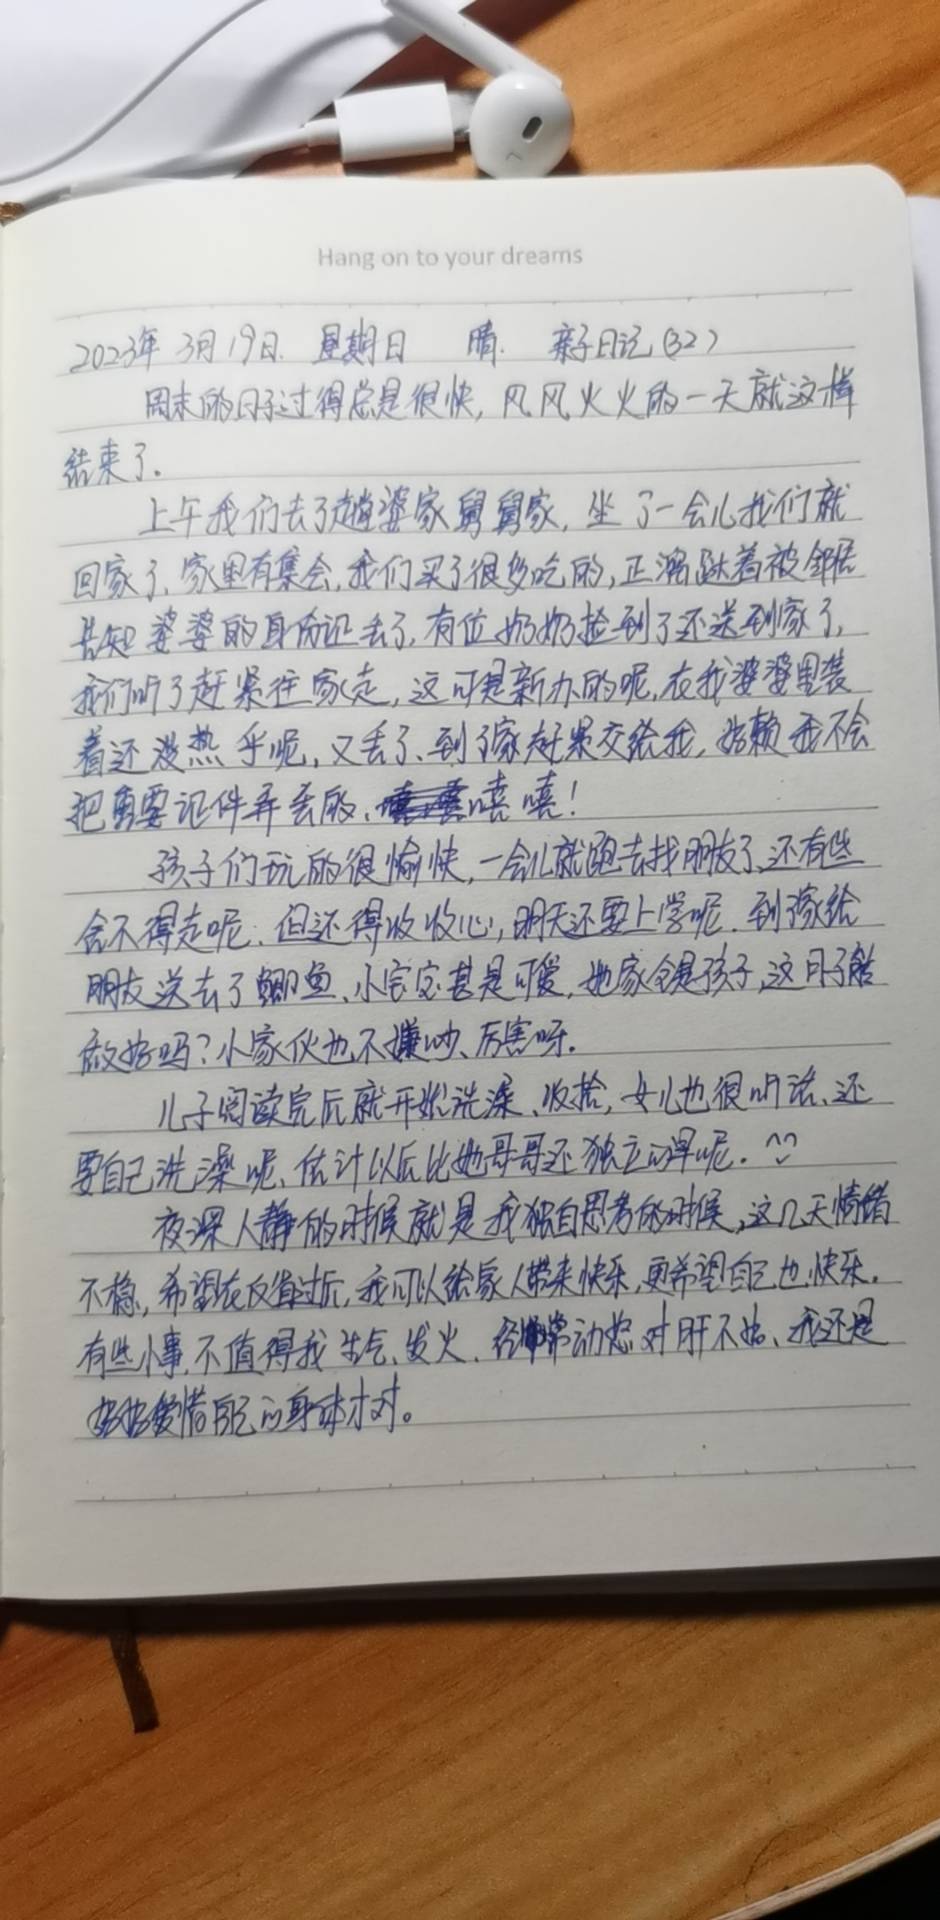 Hang on to your dreams
2023年 3月19日. 星期日 晴. 亲子日记(32)
周末的日子过得总是很快,风风火火的一天就这样
结束了.
上午我们去了趟婆家舅舅家,坐了一会儿我们就
回家了、家里有集会,我们买了很多吃的,正溜跶着被邻居
告知婆婆的身份证丢了,有位奶奶捡到了还送到家了,
我们听了赶紧往家走,这可是新办的呢,在我婆婆里装
着还没热乎呢,又丢了、到了家赶紧交给我,好赖我不会
把重要证件弄丢的、嘻嘻!
孩子们玩的很愉快,一会儿就跑去找朋友了,还有些
舍不得走呢.但还得收收心,明天还要上学呢.到家给
朋友送去了鲫鱼、小宝宝甚是可爱,她家全是孩子,这日子能
做好吗?小家伙也不嫌吵、厉害呀.
儿子阅读完后就开始洗澡、收拾,女儿也很听话、还
要自己洗澡呢、估计以后比她哥哥还独立的早呢.^^
夜深人静的时候就是我独自思考的时候,这几天情绪
不稳,希望在反省过后,我可以给家人带来快乐,更希望自己也快乐.
有些小事,不值得我生气、发火.经常动怒对肝不好、我还是
好好爱惜自己的身体才对。